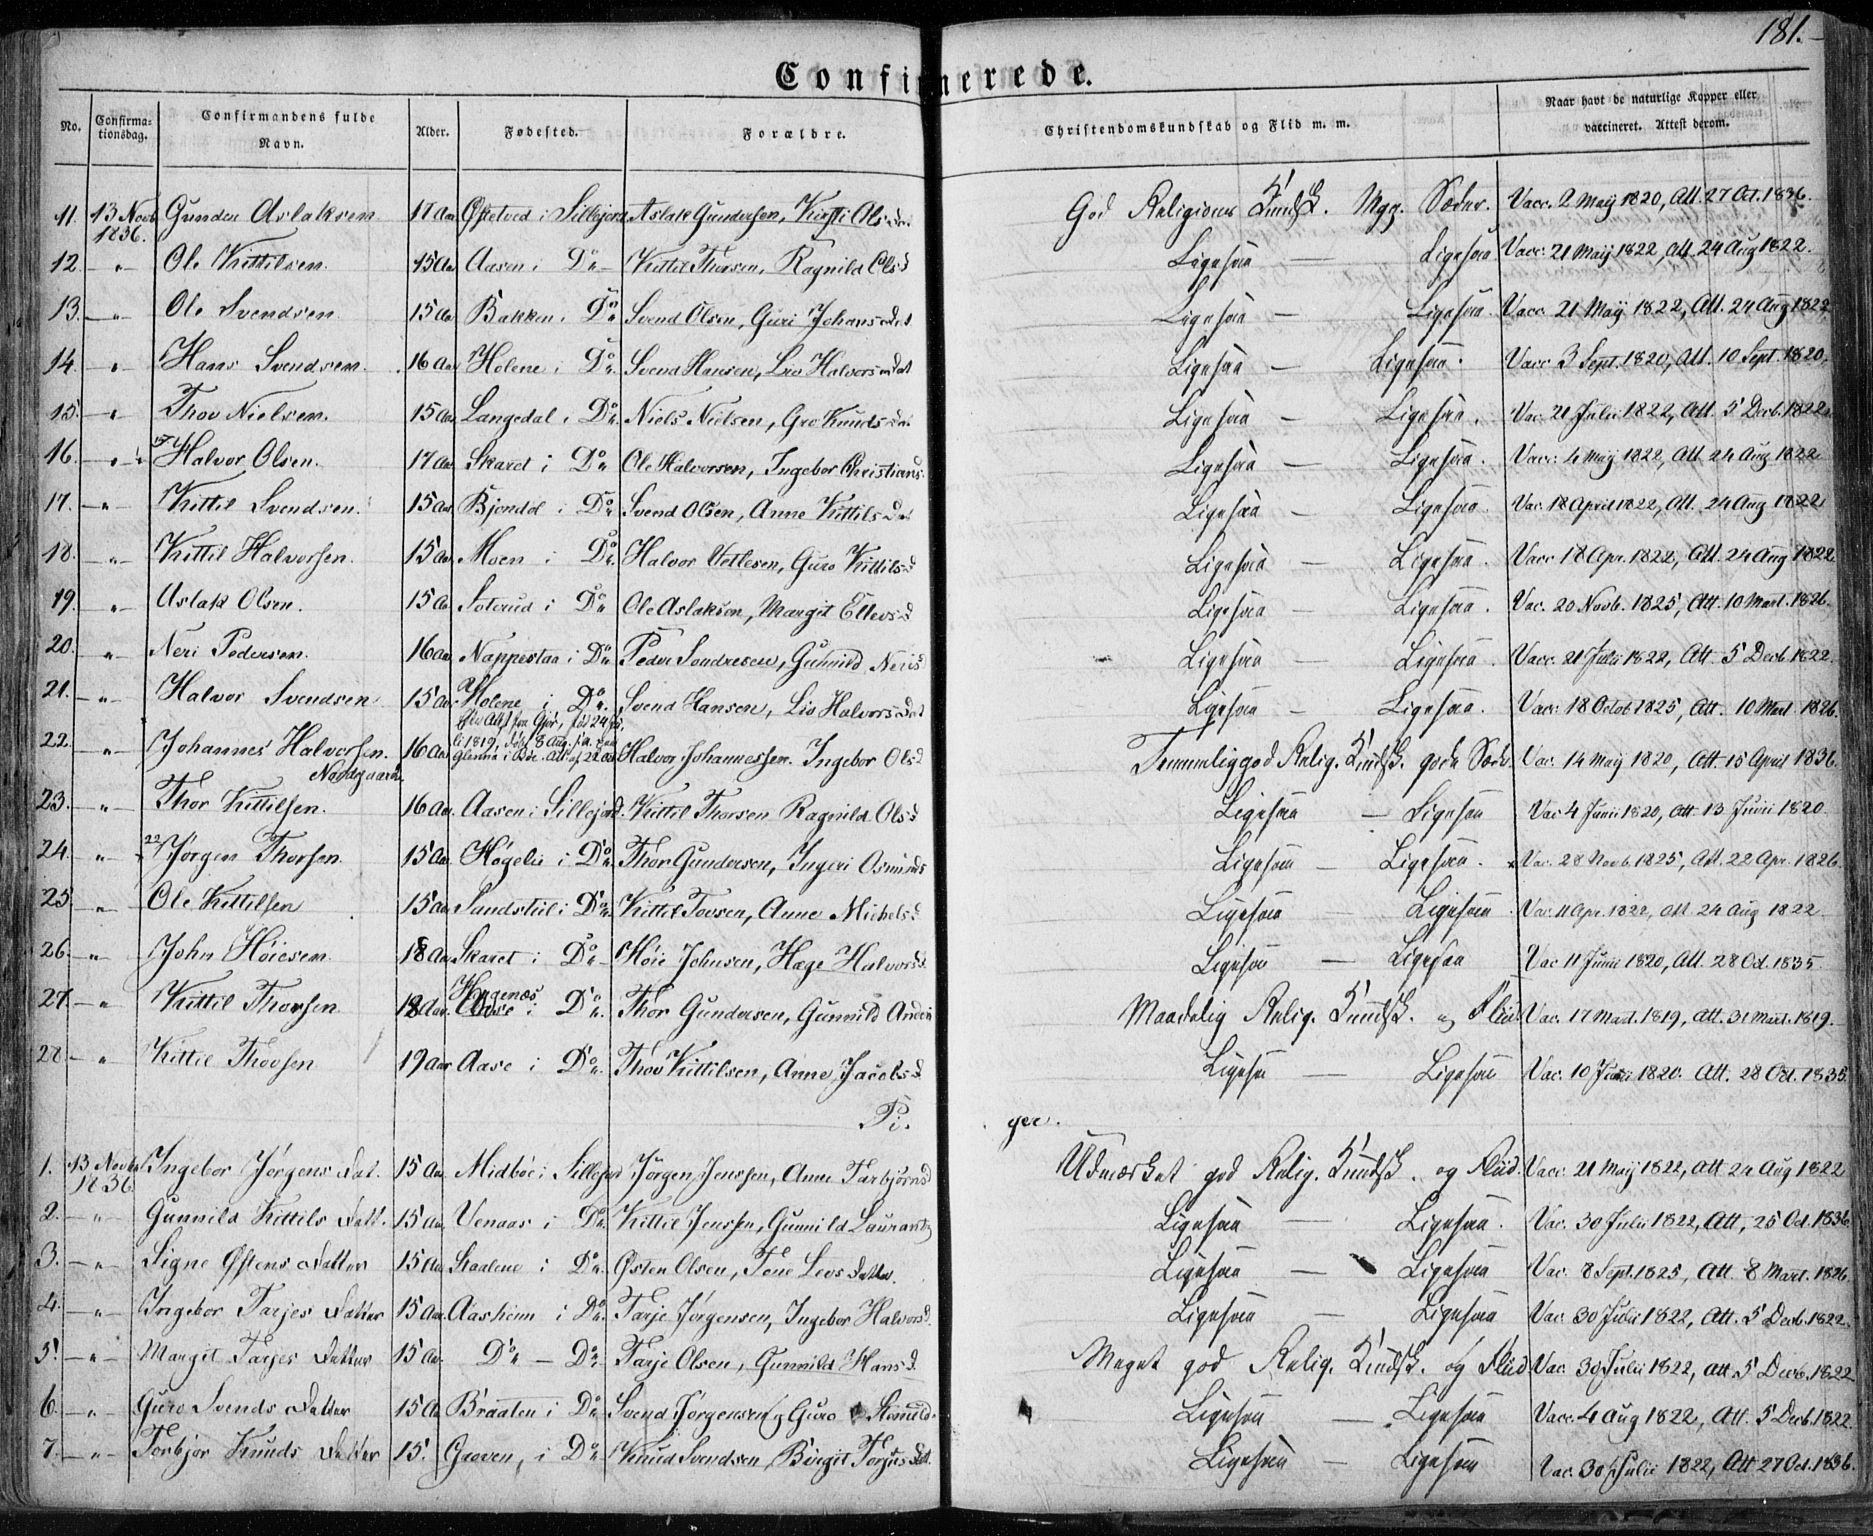 181.
Confirmerede.
No. Confirmationsdag. Confirmandens fulde Navn. Alder. Fødested. Forældre. Christendomskundskab og Flid m. m. Naar havt de naturlige Kopper eller vaccineret. Attest derom.
11. 13 Novb. 1836. Gunder Aslaksen 17 Aar Østetved i Sillejord Aslak Gundersen, Kirsti Olsdat God Religions Kundsk. Mgg. Sæder. Vacc. 2 Maij 1820, Att. 27 Oct. 1836.
12. — " Ole Kittilsen. 15 Aar Aasen i Do Kittil Thorsen, Ragnild Olsd Ligesaa — Ligesaa Vacc. 21 Maij 1822, Att. 24 Aug 1822.
13. — " Ole Svendsen 15 Aar Bakken i Do Svend Olsen, Guri Johansdat Ligesaa — Ligesaa. Vacc. 21 Maij 1822, Att. 24 Aug 1822
14. " Hans Svendsen. 16 Aar Holene i Do. Svend Hansen, Liv Halvorsdat Ligesaa — Ligesaa. Vacc 3 Sept. 1820, Att. 10 Sept. 1820.
15. — " Thov Nielsen. 15 Aar Langedal i Do Niels Nielsen, Gro Knudsdat Ligesaa — Ligesaa. Vac. 21 Julii 1822, Att. 5 Decb. 1822.
16. — " Halvor Olsen. 17 Aar Skaret i Do Ole Halvorsen, Ingebor Christians. Ligesaa — Ligesaa. Vacc. 4 Maij 1822, Att 24 Aug 1822
17. — " Kittil Svendsen. 15 Aar Bjondal i Do Svend Olsen, Anne Kittilsdat Ligesaa — Ligesaa. Vac. 18 April 1822, Att. 24 Aug 1822
18. " Kittil Halvorsen. 15 Aar Moen i Do. Halvor Vetlesen, Guro Kittilsd Ligesaa — Ligesaa. Vacc 18 Apr. 1822, Att. 24 Aug 1822
19. — " Aslak Olsen. 15 Aar Soterud i Do Ole Aslaksen, Margit Ellevsd Ligesaa — Ligesaa. Vac. 20 Novb. 1825, Att. 10 Mart. 1826.
20. — " Neri Pedersen. 16 Aar Nappestaa i Do Peder Sondresen, Gunnild Nerisd Ligesaa — Ligesaa. Vacc. 21 Julii 1822, Att. 5 Decb 1822.
21. — " Halvor Svendsen 15 Aar Holene i Do. Svend Hansen, Liv Halvorsdat Ligesaa — Ligesaa. Vacc. 18 Octob 1825, Att. 10 Mart 1826.
22. " Johannes Halvorsen. Nordgaarden 16 Aar 1819, 8 Aug. Glenna i Bøe. Att. af 22 Halvor Johannessen. Ingebor Olsd Temmelig god Relig. Kundsk. gode Sæder Vac. 14 Maij 1820, Att 15 April 1836.
23. — " Thor Kittilsen. 16 Aar. Aasen i Sillejord. Kittil Thorsen Ragnild Olsd Ligesaa — Ligesaa Vac 4 Junii 1820, Att. 13 Junii 1820
24. " Jørgen Thorsen. 15 Aar Høgelie i Do Thor Gundersen, Ingeri Osmunds Ligesaa — Ligesaa. Vac. 28 Novb. 1825, Att. 22 Apr. 1826.
25. — " Ole Kittilsen 15 Aar Sandstiil i Do. Kittil Tovsen, Anne Michelsd Ligesaa — Ligesaa Vac. 11 Apr. 1822, Att 24 Aug 1822.
26. — " John Høiesen 18 Aar Skaret i Do Høie Johnsen, Hæge Halvorsd. Ligesaa — Ligesaa Vac 11 Junii 1820, Att. 28 Oct. 1835.
27. — " Kittil Thorsen 18 Aar. Hagenæs i Do. Thor Gundersen, Gunnild Maadelig Relig. Kundsk. og Fliid Vac. 17 Mart. 1819, Att. 31 Mart. 1819.
28. — " Kittil Thovsen 19 Aar Aase i Do. Thov Kittilsen, Anne Jacobsd Ligesaa — Ligesaa Vac. 10 Junii 1820. Att. 28 Oct. 1835.
Pi. ger.
1. 13 Novbr 1836 Ingebor Jørgens Dat. 15 Aar Midbøe i Sillejord Jørgen Jenssen, Anne Tarbjørnsd Udmærket god Relig. Kundsk. og Fliid. Vacc. 21 Maij 1822, Att 24 Aug 1822
2. — " Gunnild Kittils Datt. 15 Aar Venaas i Do. Kittil Jenssen, Gunnild Laurantz Ligesaa — Ligesaa. Vac. 30 Julii 1822, Att, 25 Oct. 1836
3. — " Signe Østens Datter 15 Aar Skalene i Do. Østen Olsen, Tone Levs Datter. Ligesaa — Ligesaa Vac. 8 Sept. 1825, Att. 8 Mart. 1826
4. — " Ingebor Tarjes Datter 15 Aar. Aasheim i Do. Tarje Jørgensen, Ingebor Halvorsd. Ligesaa — Ligesaa Vac. 30 Julii 1822, Att. 5 Decb. 1822.
5. — " Margit Tarjes Datter 15 Aar Do — Do. Tarje Olsen, Gunnild Hansd Meget god Relig. Kundsk. og Fliid Vac. 30 Julii 1822, Att. 5 Decb. 1822
6. — " Guro Svends Datter 15 Aar Braaten i Do Svend Jørgensen, Guro Ligesaa — Ligesaa Vacc. 4 Aug 1822, Att. 5 Decb. 1822.
7. — " Torbjør Knuds Datter 15. Groven, i Do Knud Svendsen, Birgit Torjusdat. Ligesaa — Ligesaa Vac. 30 Julii 1822, Att 27 Oct. 1836.